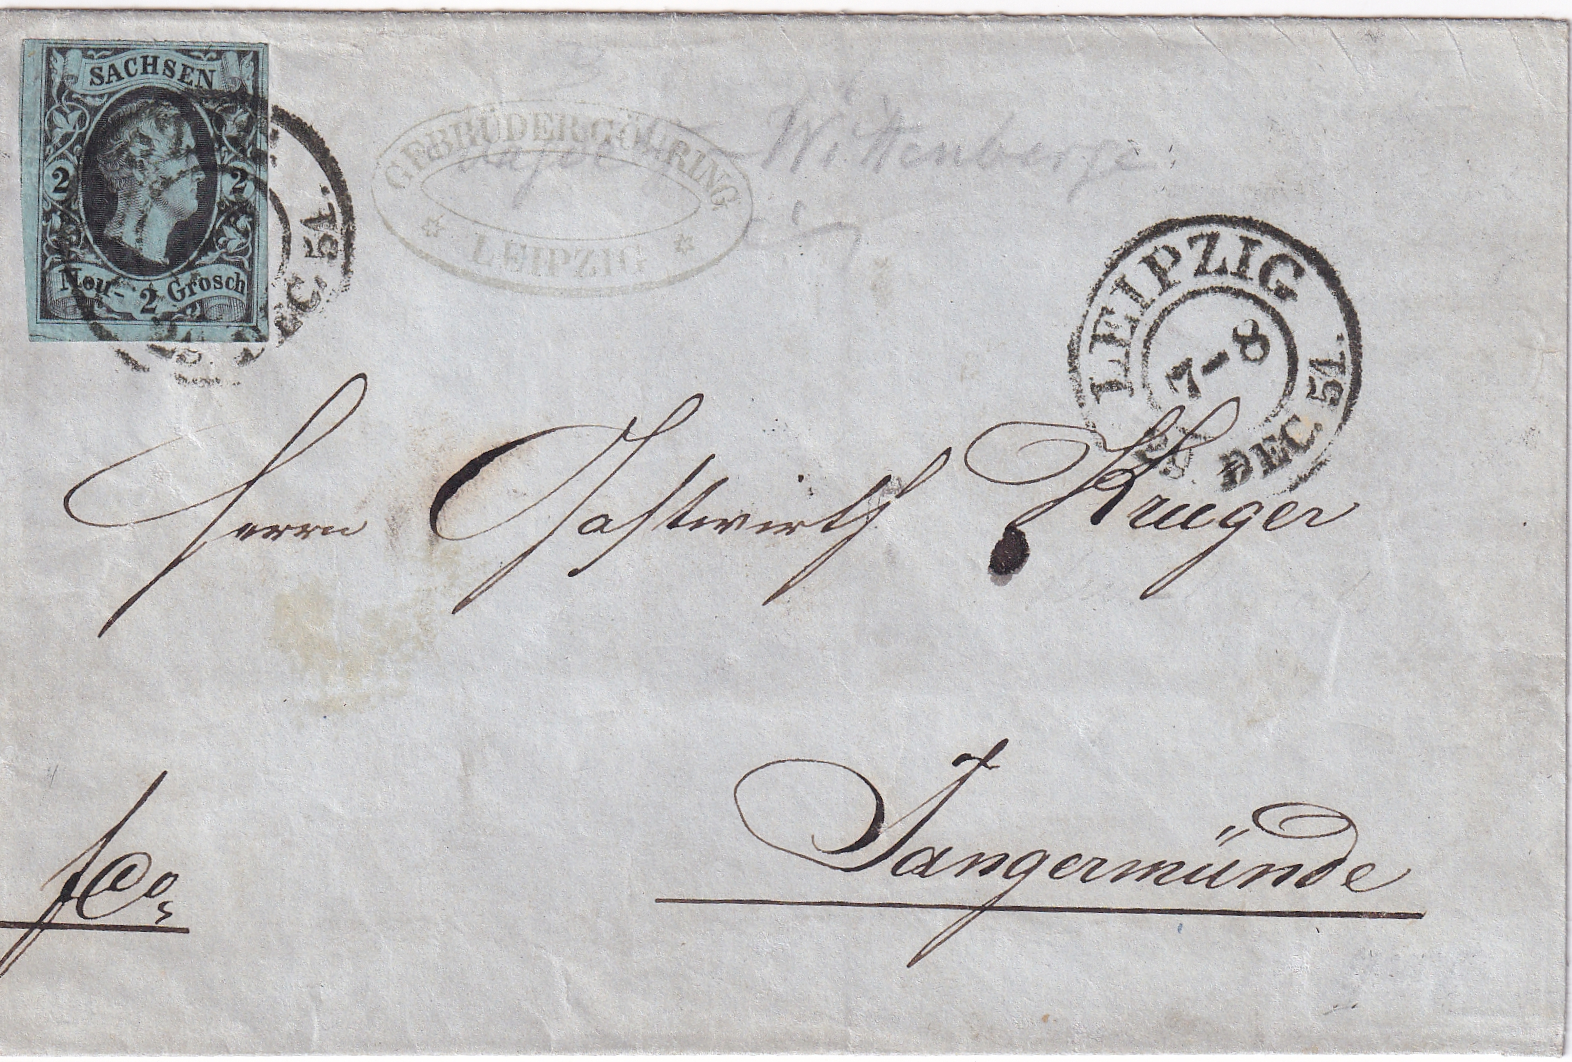 SACHSEN
2 2
Neu- 2 Grosch
DEC. 51.
GEBRÜDER GÖHRING
LEIPZIG
Wittenberge
LEIPZIG
7-8
DEC. 51.
Herrn Gastwirth Krueger
Tangermünde
fco